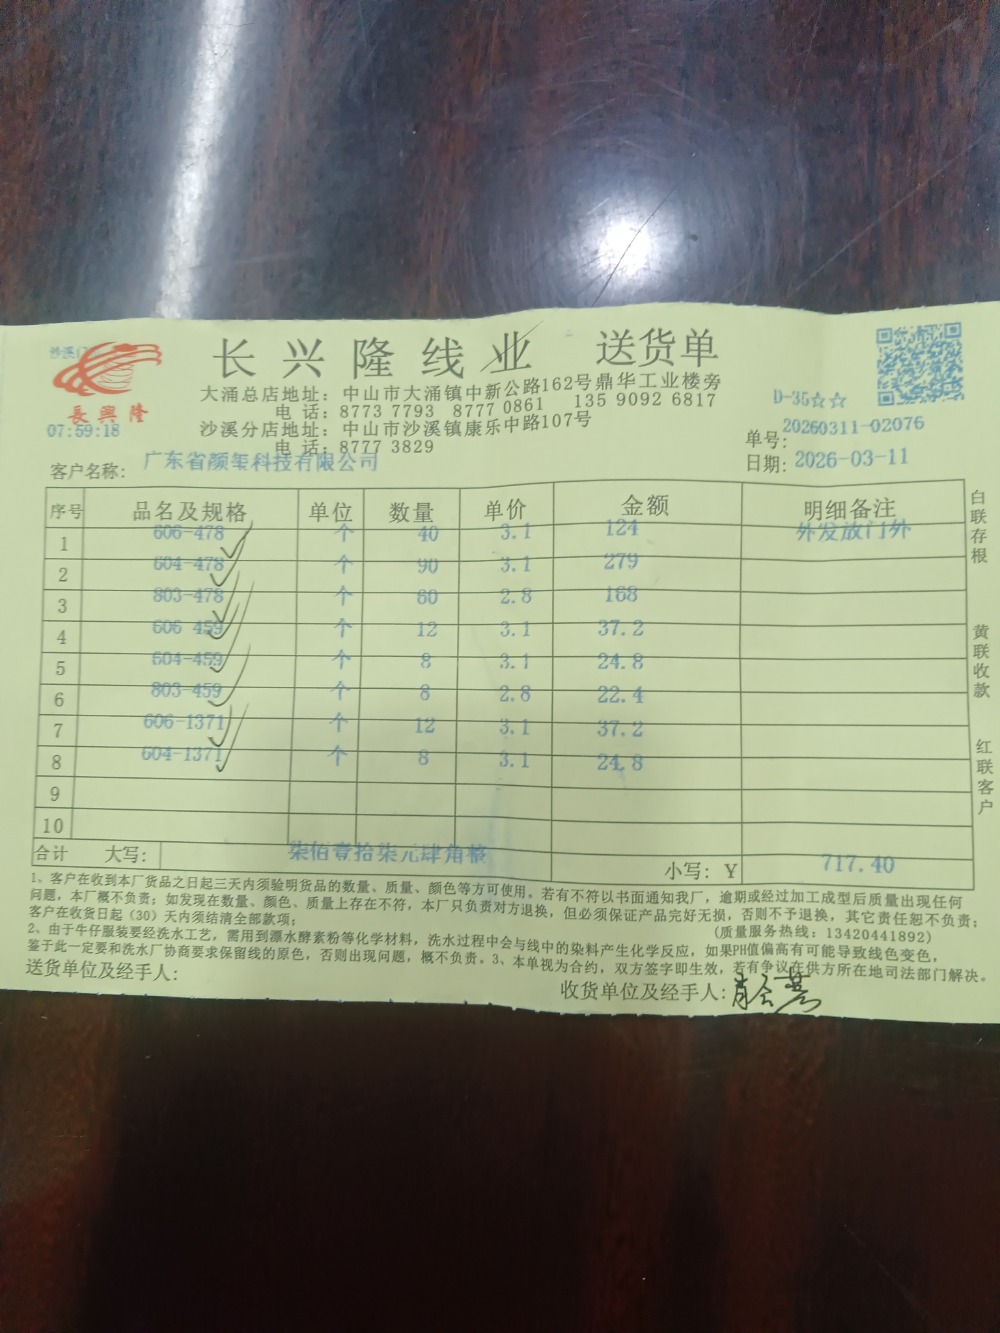 沙溪门
長興隆
07:59:18
长兴隆线业 送货单
大涌总店地址：中山市大涌镇中新公路162号鼎华工业楼旁
电 话：8773 7793 8777 0861 135 9092 6817
沙溪分店地址：中山市沙溪镇康乐中路107号
电 话：8777 3829
D-35☆☆
单号：20260311-02076
日期：2026-03-11
客户名称：广东省颜玺科技有限公司
序号 品名及规格 单位 数量 单价 金额 明细备注
1 606-478 个 40 3.1 124 外发放门外
2 604-478 个 90 3.1 279
3 803-478 个 60 2.8 168
4 606-459 个 12 3.1 37.2
5 604-459 个 8 3.1 24.8
6 803-459 个 8 2.8 22.4
7 606-1371 个 12 3.1 37.2
8 604-1371 个 8 3.1 24.8
9
10
合计 大写：柒佰壹拾柒元肆角整 小写：￥ 717.40
白联存根
黄联收款
红联客户
1、客户在收到本厂货品之日起三天内须验明货品的数量、质量、颜色等方可使用。若有不符以书面通知我厂，逾期或经过加工成型后质量出现任何
问题，本厂概不负责；如发现在数量、颜色、质量上存在不符，本厂只负责对方退换，但必须保证产品完好无损，否则不予退换，其它责任恕不负责；
客户在收货日起（30）天内须结清全部款项； (质量服务热线：13420441892)
2、由于牛仔服装要经洗水工艺，需用到漂水酵素粉等化学材料，洗水过程中会与线中的染料产生化学反应，如果PH值偏高有可能导致线色变色，
鉴于此一定要和洗水厂协商要求保留线的原色，否则出现问题，概不负责。3、本单视为合约，双方签字即生效，若有争议在供方所在地司法部门解决。
送货单位及经手人： 收货单位及经手人：